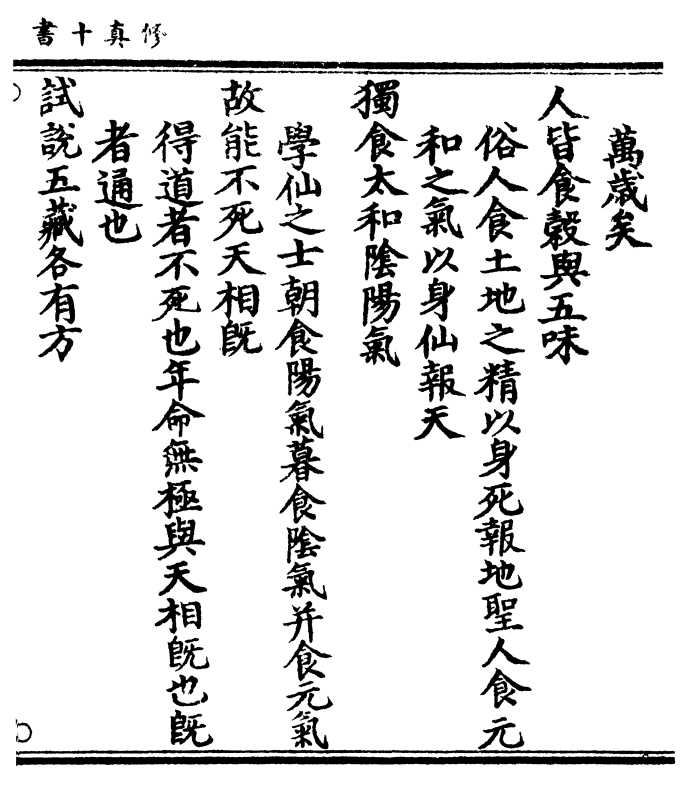 修真十書
萬歲矣
人皆食穀與五味
俗人食土地之精以身死報地聖人食元
和之氣以身仙報天
獨食太和陰陽氣
學仙之士朝食陽氣暮食陰氣并食元氣
故能不死天相旣
得道者不死也年命無極與天相旣也旣
者通也
試說五藏各有方